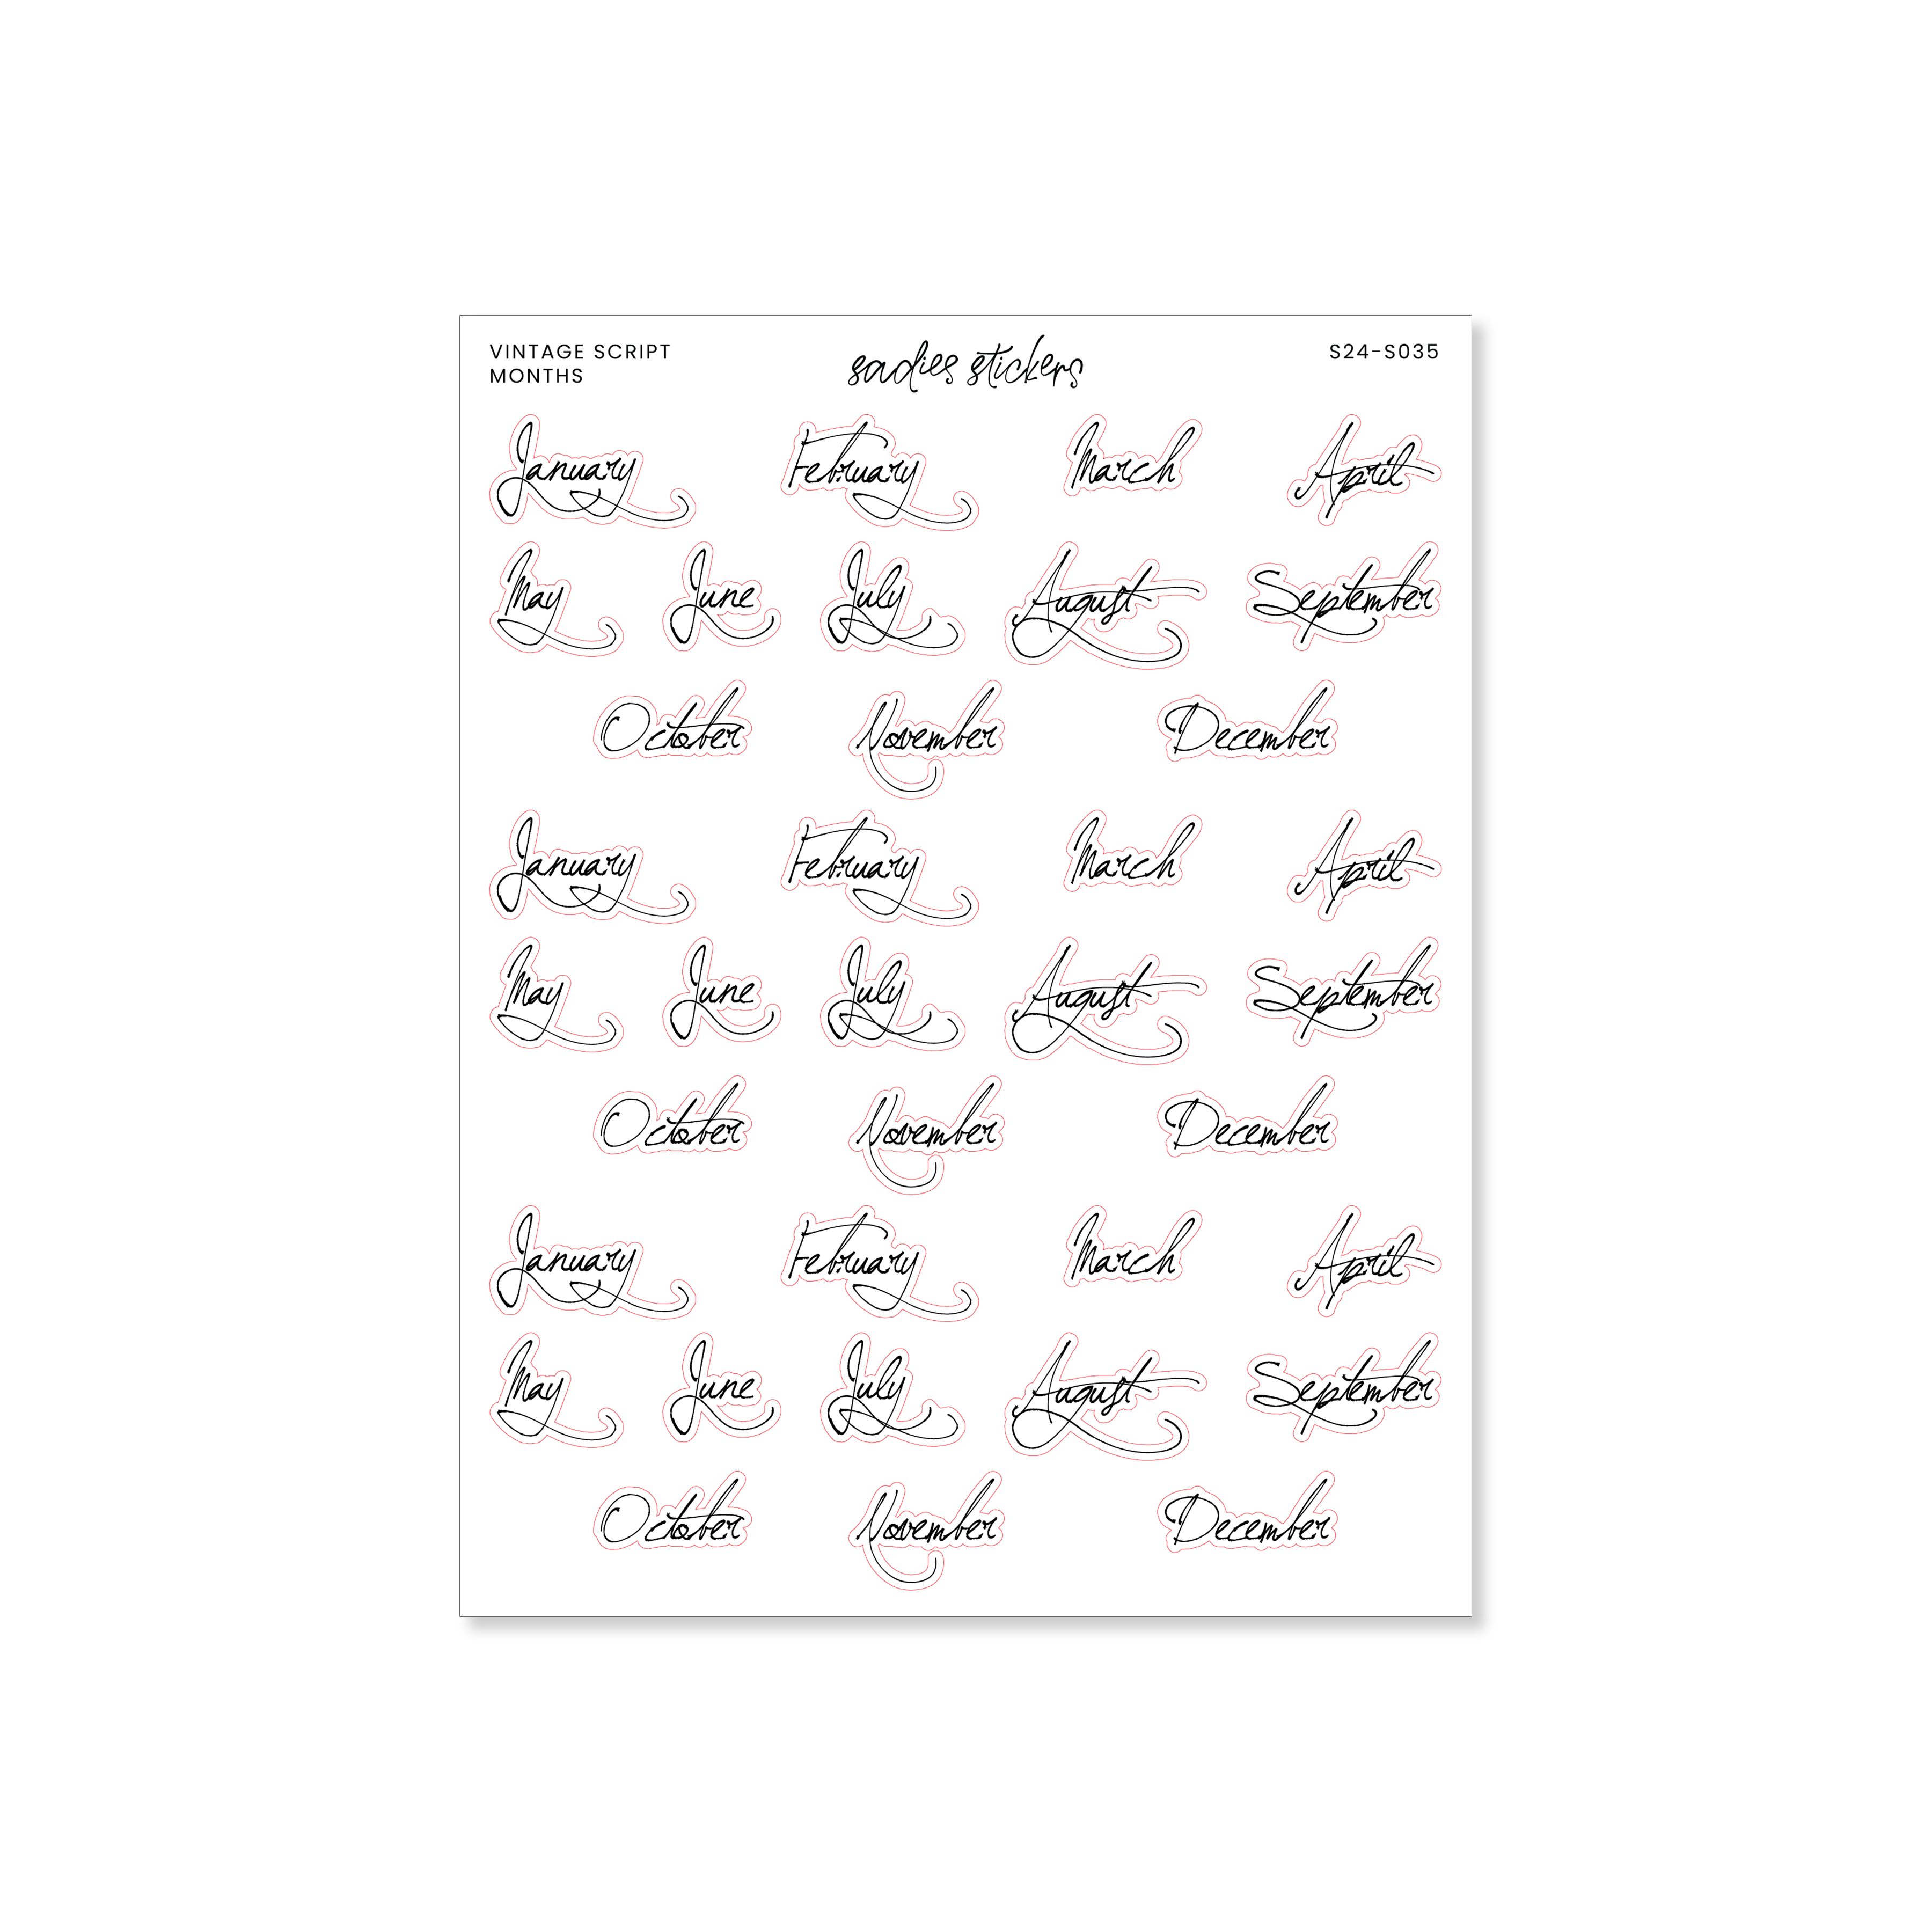 VINTAGE SCRIPT MONTHS
sadies stickers
S24-S035
January February March April
May June July August September
October November December
January February March April
May June July August September
October November December
January February March April
May June July August September
October November December